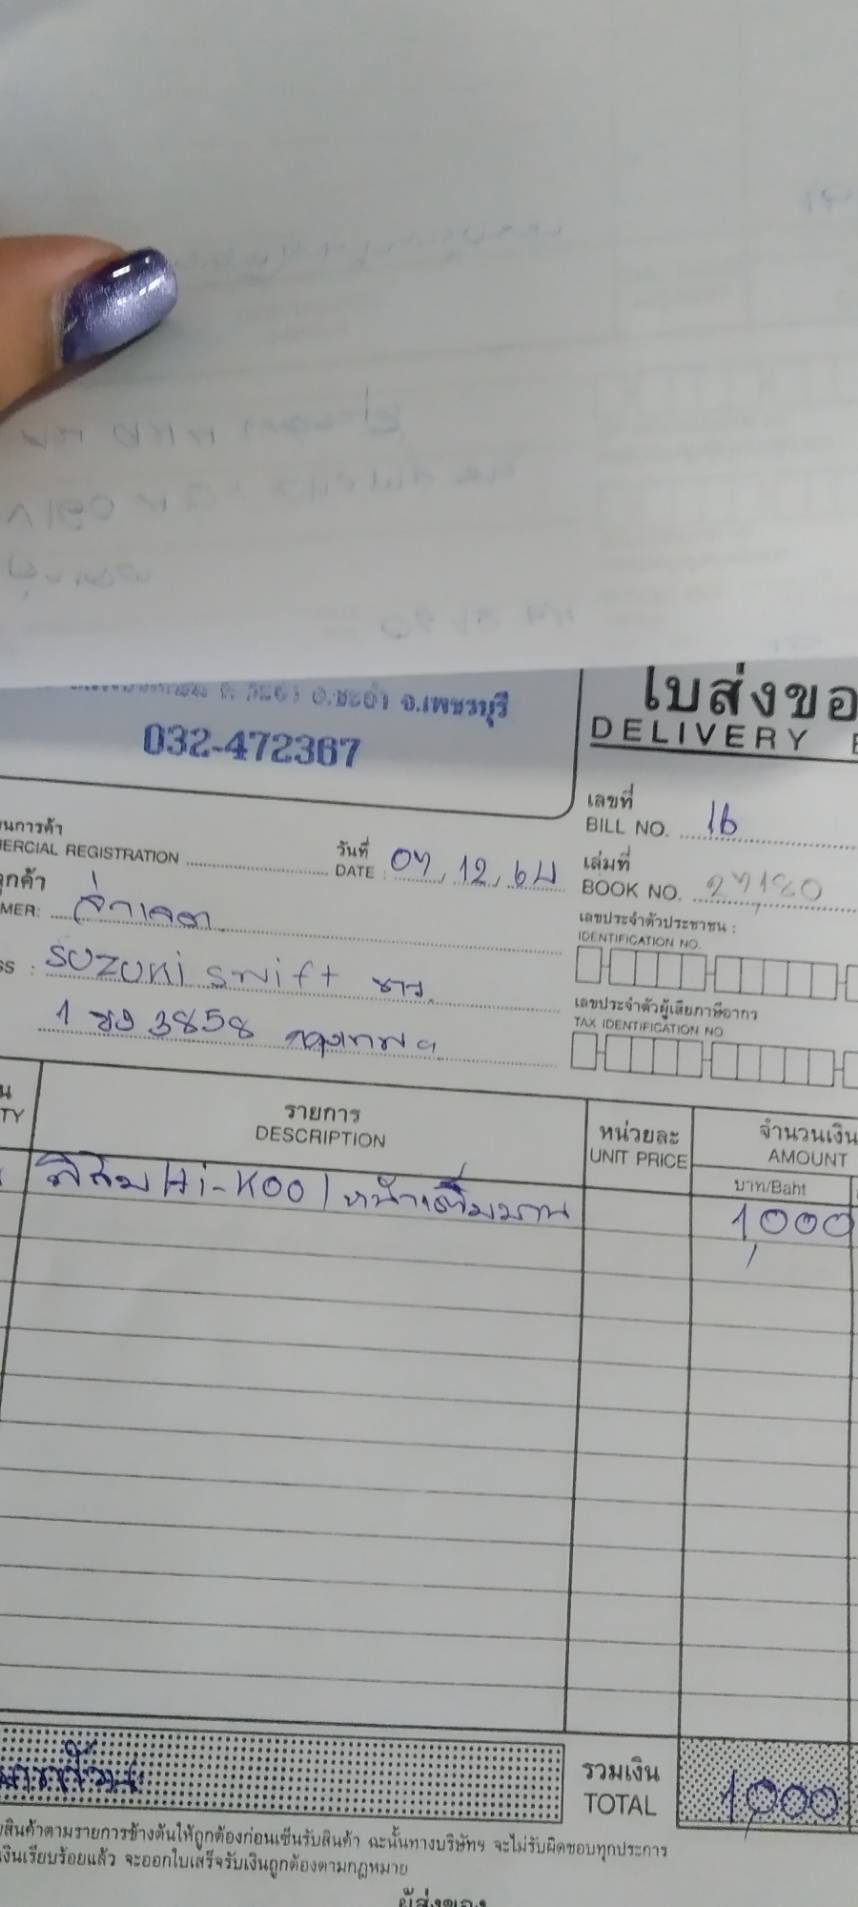 อ.ชะอำ จ.เพชรบุรี
032-472367
ใบส่งขอ
DELIVERY
เลขที่
BILL NO. 16
นการค้า
ERCIAL REGISTRATION
วันที่
DATE : 07, 12, 64
เล่มที่
BOOK NO. 27180
ูกค้า
MER:
เลขประจำตัวประชาชน :
IDENTIFICATION NO.
SS : SUZUKI swift ขาว
เลขประจำตัวผู้เสียภาษีอากร
TAX IDENTIFICATION NO
1 ขง 3858 กรุงเทพฯ
น
TY
รายการ
DESCRIPTION
หน่วยละ
UNIT PRICE
จำนวนเงิน
AMOUNT
บาท/Baht
ฟิล์ม Hi-KOO / หน้าเต็มบาน
1,000
รวมเงิน
TOTAL
1,000
สินค้าตามรายการข้างต้นให้ถูกต้องก่อนเซ็นรับสินค้า ฉะนั้นทางบริษัทฯ จะไม่รับผิดชอบทุกประการ
เงินเรียบร้อยแล้ว จะออกใบเสร็จรับเงินถูกต้องตามกฎหมาย
ผู้ส่งของ